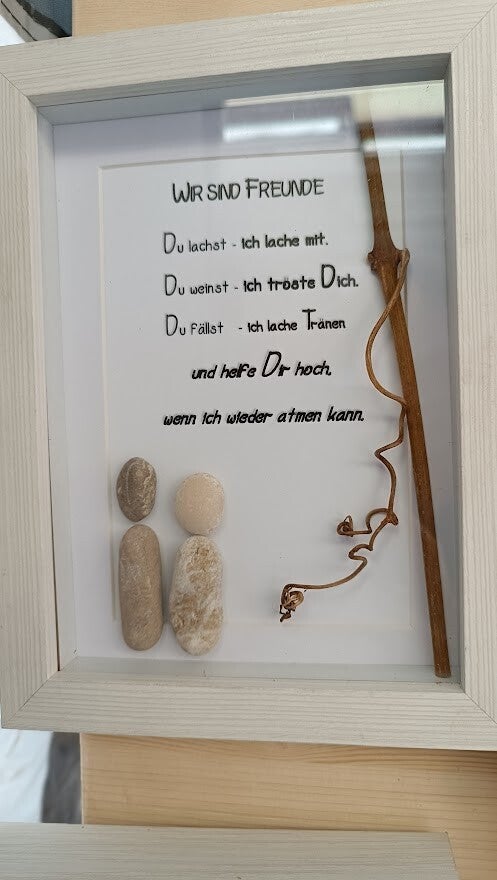 WIR SIND FREUNDE
Du lachst - ich lache mit.
Du weinst - ich tröste Dich.
Du Fällst - ich lache Tränen
und helfe Dir hoch,
wenn ich wieder atmen kann.